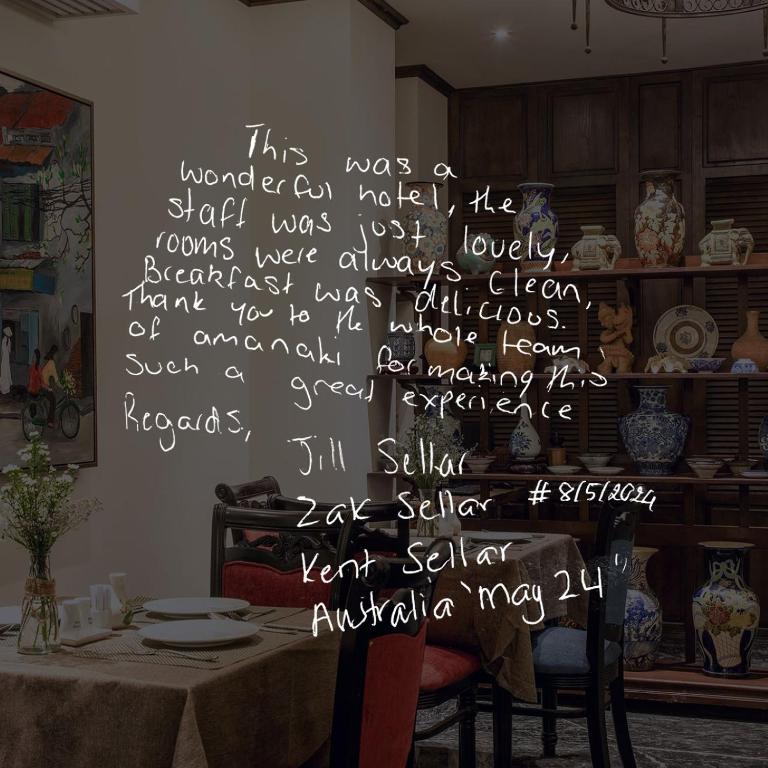 This was a
wonderful hotel, the
staff was just lovely,
rooms were always clean,
Breakfast was delicious.
Thank you to the whole team
of amanaki for making this
such a great experience
Regards,
Jill Sellar
Zak Sellar # 8/5/2024
Kent Sellar
Australia "may 24"